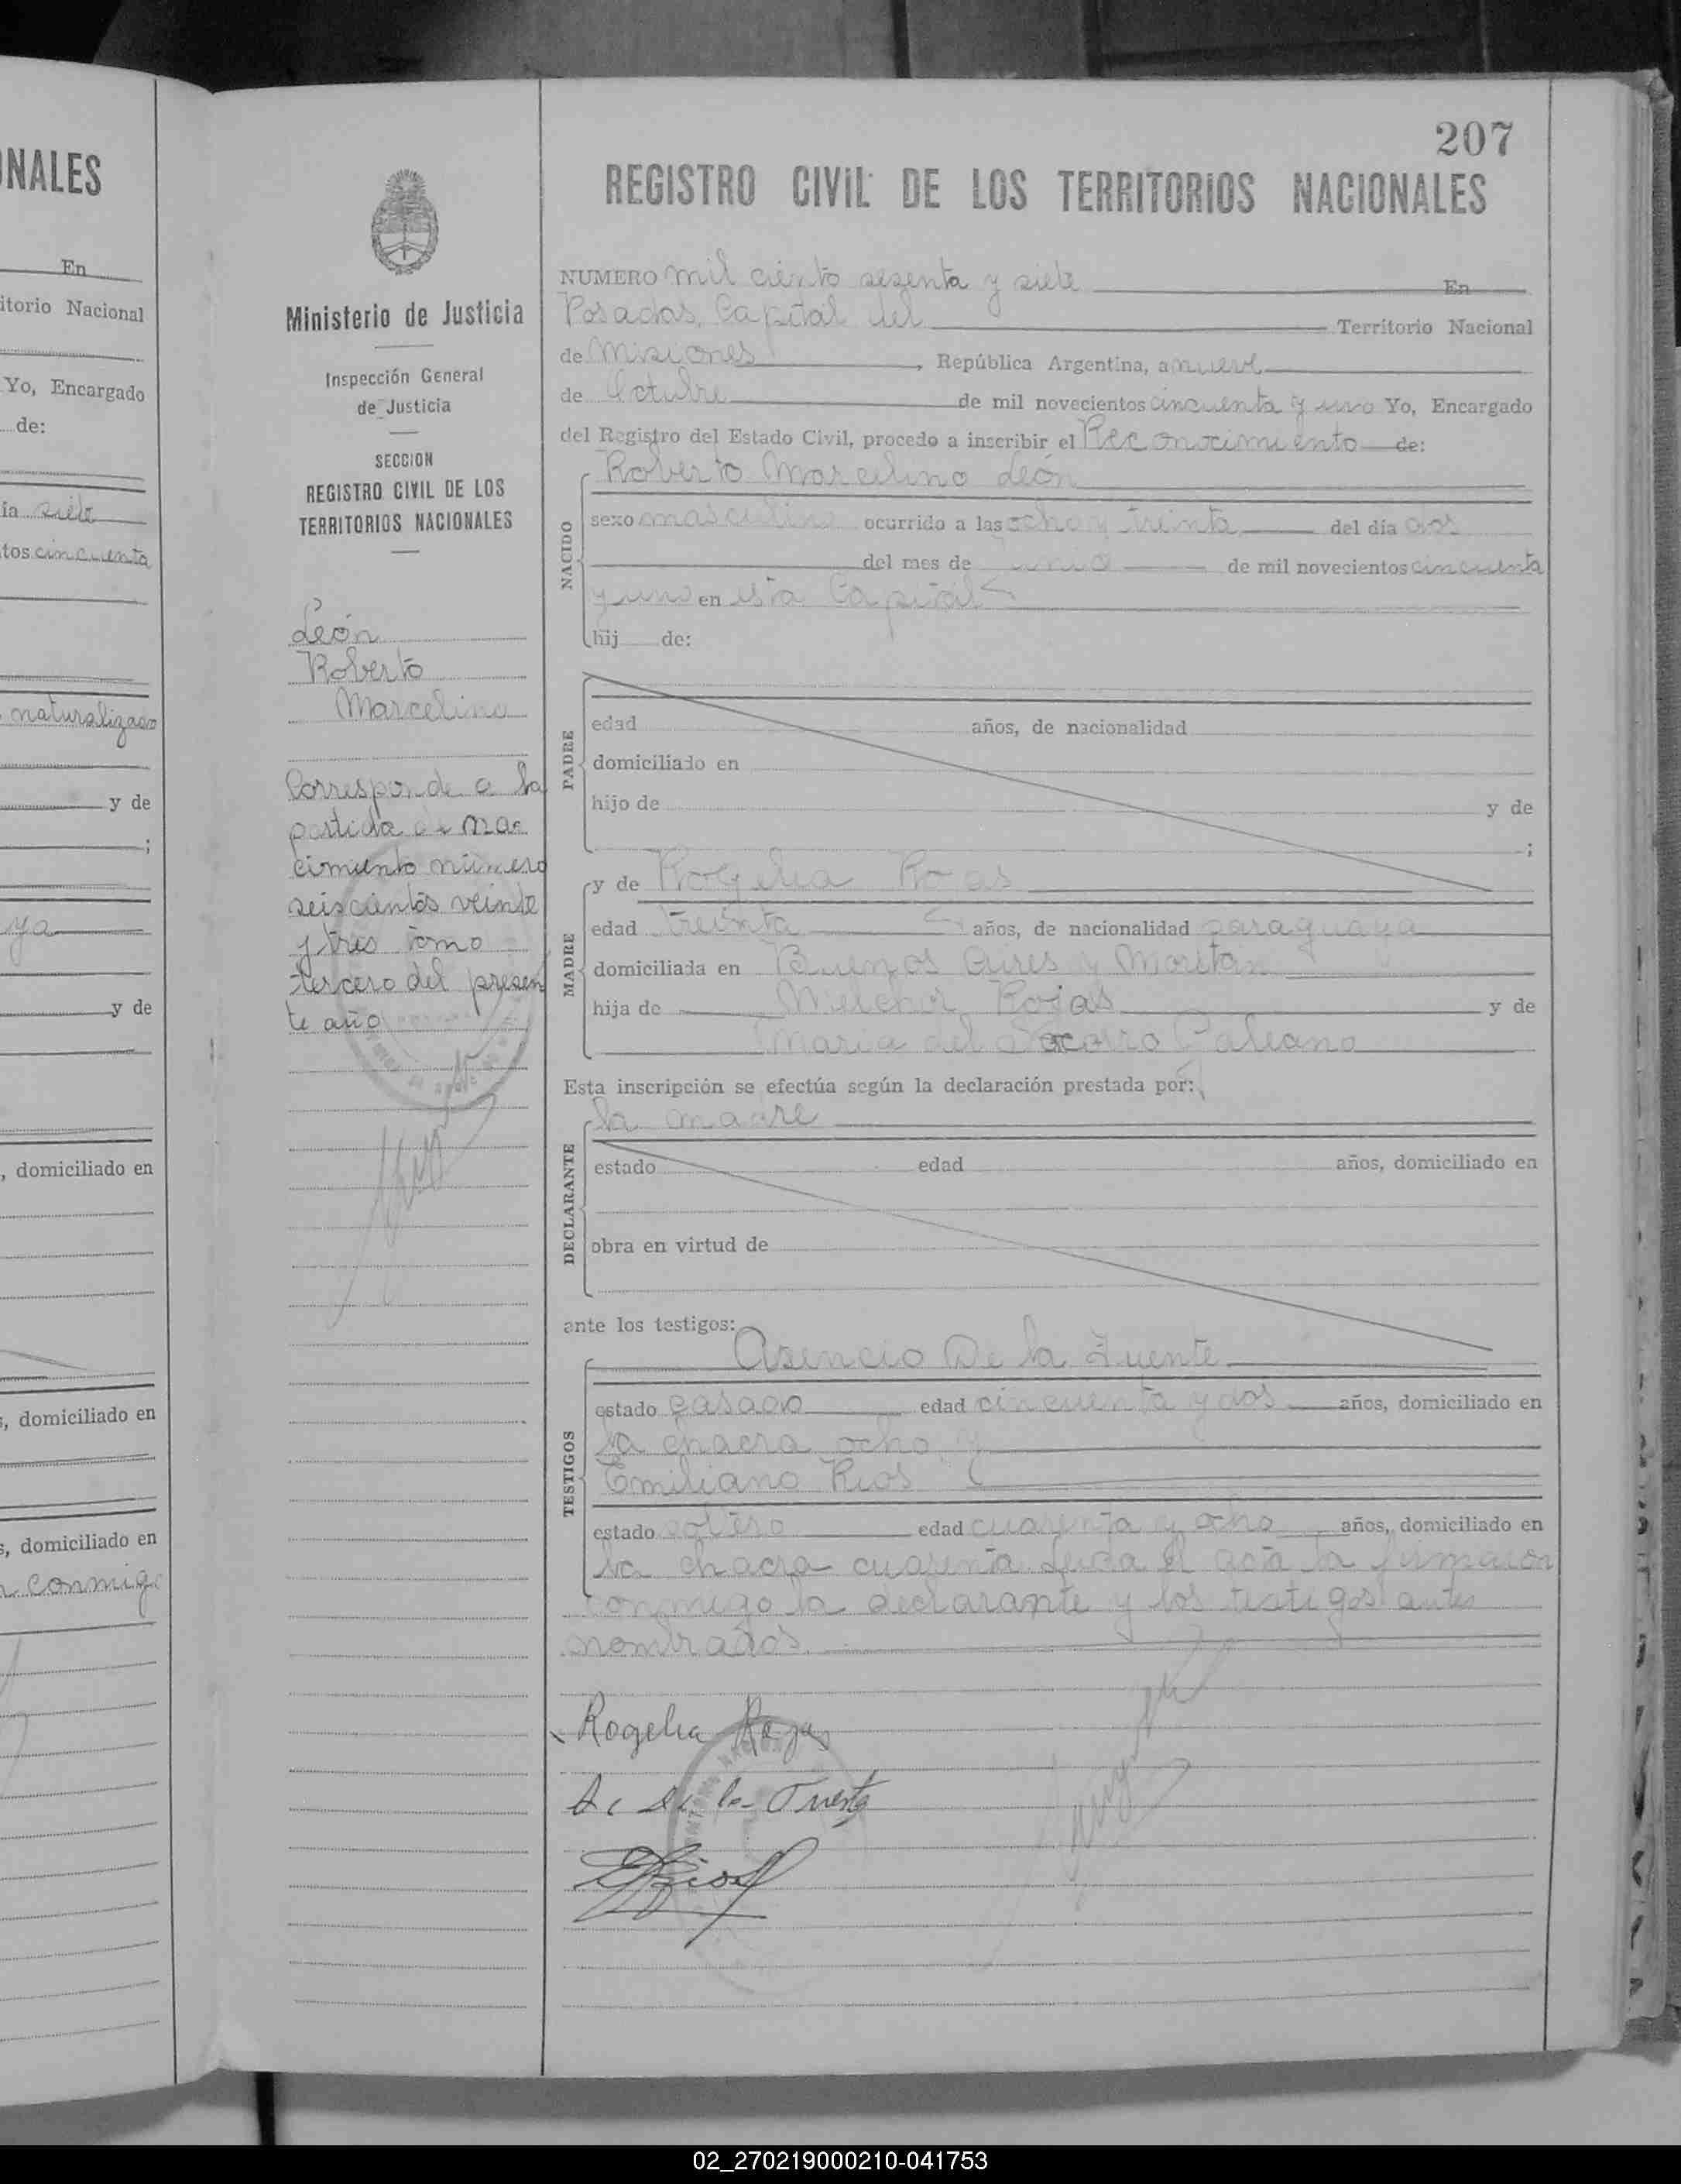 NALES
En
itorio Nacional
Yo, Encargado
de:
ia siete
tos cincuenta
naturalizado
y de
;
ya
y de
, domiciliado en
s, domiciliado en
s, domiciliado en
conmigo
Ministerio de Justicia
Inspección General
de Justicia
SECCION
REGISTRO CIVIL DE LOS
TERRITORIOS NACIONALES
León
Roberto
Marcelino
Corresponde a la
partida de na-
cimiento número
seiscientos veinte
y tres tomo
tercero del presen
te año
207
REGISTRO CIVIL DE LOS TERRITORIOS NACIONALES
NUMERO mil ciento sesenta y siete En
Posadas, Capital del Territorio Nacional
de Misiones, República Argentina, a nueve
de Octubre de mil novecientos cincuenta y uno Yo, Encargado
del Registro del Estado Civil, procedo a inscribir el Reconocimiento de:
NACIDO
Roberto Marcelino León
sexo masculino ocurrido a las ocho y treinta del día dos
del mes de junio de mil novecientos cincuenta
y uno en esta Capital
hij de:
PADRE
edad años, de nacionalidad
domiciliado en
hijo de y de
;
MADRE
y de Rogelia Rojas
edad treinta años, de nacionalidad paraguaya
domiciliada en Buenos Aires y Moritán
hija de Melchor Rojas y de
María del Socorro Galeano
Esta inscripción se efectúa según la declaración prestada por:
DECLARANTE
la madre
estado edad años, domiciliado en
obra en virtud de
ante los testigos:
TESTIGOS
Asencio De la Fuente
estado casado edad cincuenta y dos años, domiciliado en
la chacra ocho y
Emiliano Rios
estado soltero edad cuarenta y ocho años, domiciliado en
la chacra cuarenta. Leida el acta la firmaron
conmigo la declarante y los testigos antes
nombrados.
Rogelia Rojas
A. De la Fuente
E Rios
02_270219000210-041753